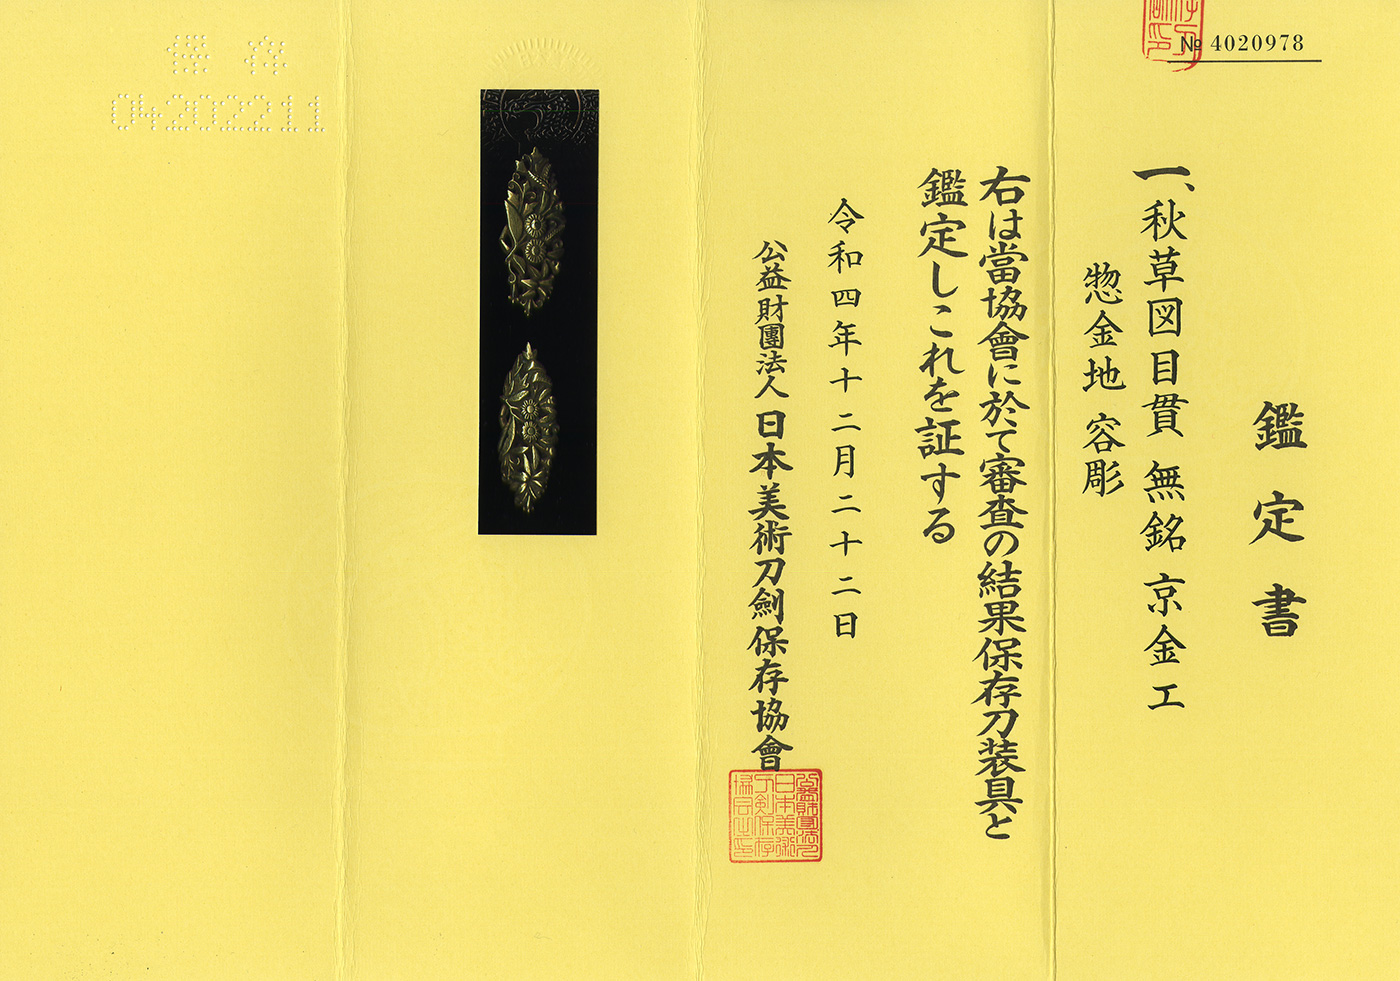 № 4020978
鑑定書
一、秋草図目貫 無銘 京金工
惣金地 容彫
右は當協會に於て審査の結果保存刀装具と
鑑定しこれを証する
令和四年十二月二十二日
公益財團法人 日本美術刀劍保存協會
公益財團法人
日本美術
刀剣保存
協会之印
保存
04202211